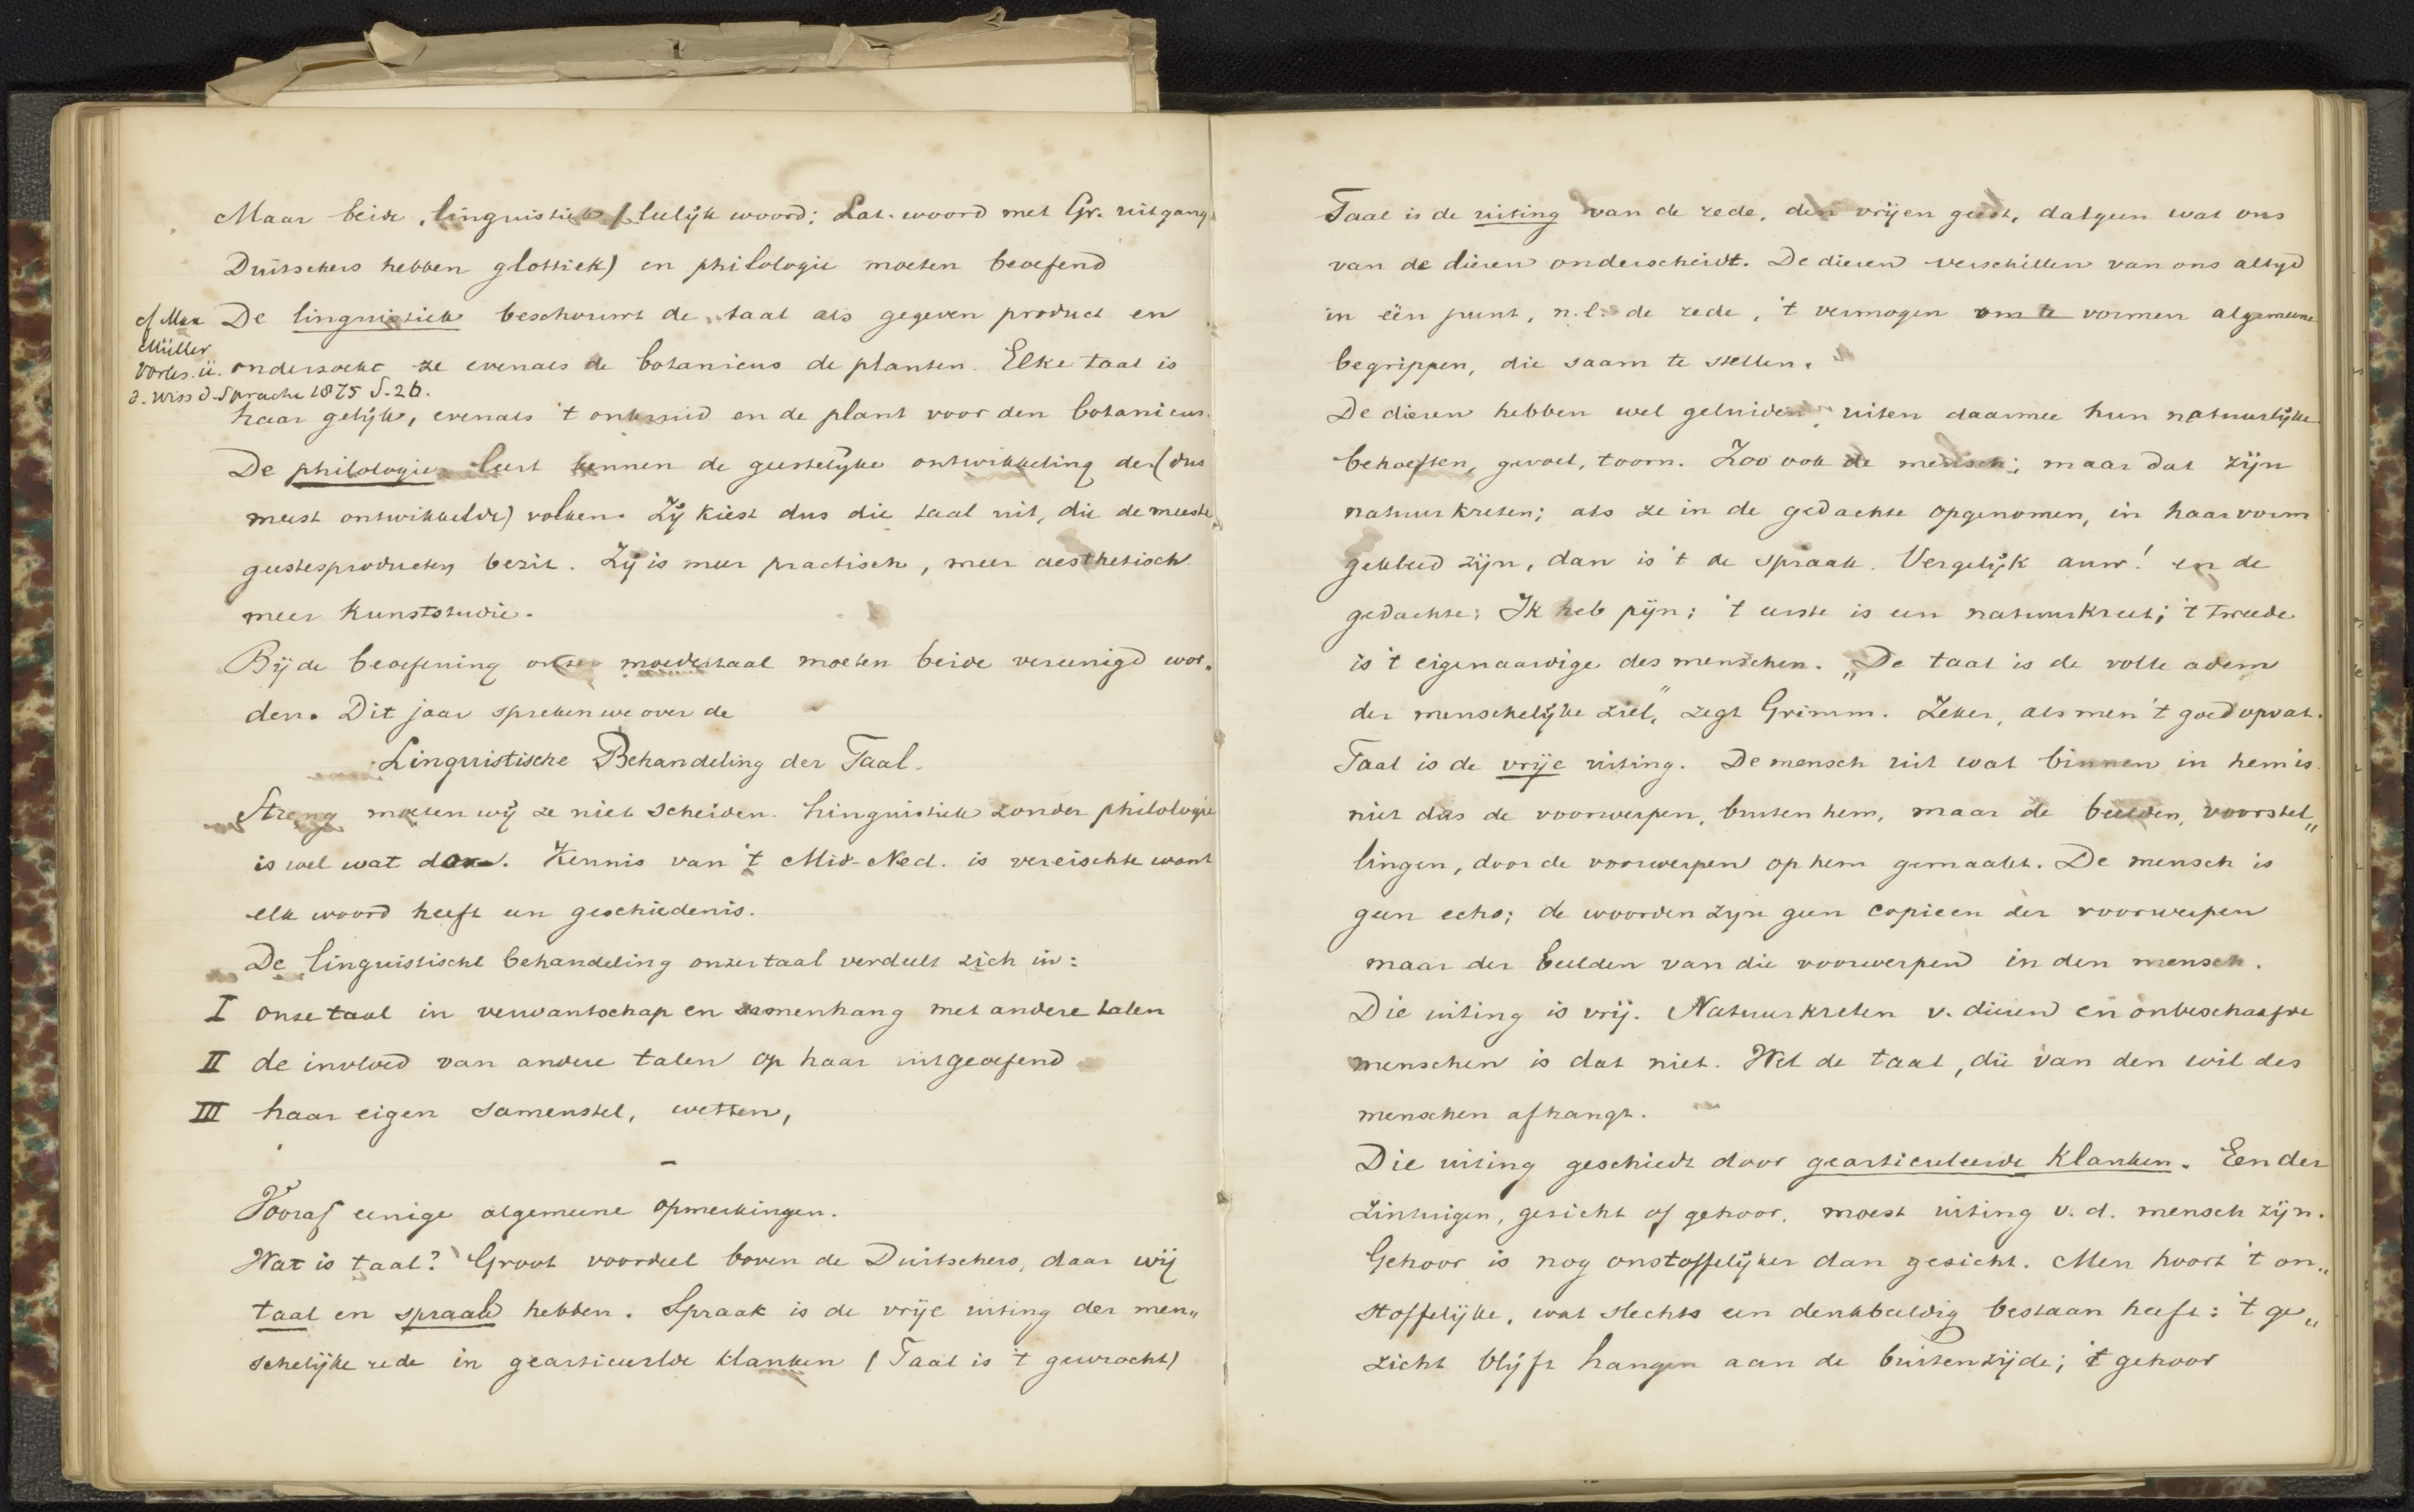 Maar beide, linguistiek (leelijk woord: Lat. woord met Gr. uitgang
Duitschers hebben glottiek) en philologie moeten beoefend
De linguistiek beschouwt de taal als gegeven product en
cf Max
Müller
Vorles. ü.
d. Wiss d. Sprache 1875 S. 26.
onderzoekt ze evenals de botanicus de planten. Elke taal is
haar gelijk, evenals 't onkruid en de plant voor den botanicus.
De philologie leert kennen de geestelijke ontwikkeling der (dus
meest ontwikkelde) volken. Zij kiest dus die taal uit, die de meeste
geestesproducten bezit. Zij is meer practisch, meer aesthetisch
meer kunststudie.
Bij de beoefening onzer moedertaal moeten beide vereenigd wor-
den. Dit jaar spreken we over de
Linguistische Behandeling der Taal.
Streng moeten wij ze niet scheiden. Linguistiek zonder philologie
is wel wat dor. Kennis van 't Mid-Ned. is vereischte want
elk woord heeft een geschiedenis.
De linguistische behandeling onzer taal verdeelt zich in:
I onze taal in verwantschap en samenhang met andere talen
II de invloed van andere talen op haar uitgeoefend
III haar eigen samenstel, wetten,
Vooraf eenige algemeene opmerkingen.
Wat is taal? Groot voordeel boven de Duitschers, daar wij
taal en spraak hebben. Spraak is de vrije uiting der men„
schelijke rede in gearticuelde klanken (Taal is 't gewrocht)
Taal is de uiting van de rede, den vrijen geest, datgeen wat ons
van de dieren onderscheidt. De dieren verschillen van ons altyd
in één punt, n.l. de rede, 't vermogen om te vormen algemeene
begrippen, die saam te stellen.
De dieren hebben wel geluiden, uiten daarmee hun natuurlijke
behoeften, gevoel, toorn. Zoo ook de mensch; maar dat zijn
natuurkreten; als ze in de gedachte opgenomen, in haar vorm
gekleed zijn, dan is 't de spraak. Vergelijk auw! en de
gedachte: Ik heb pijn: 't eerste is een natuurkreet; 't tweede
is 't eigenaardige des menschen. „De taal is de volle adem
der menschelijke ziel," zegt Grimm. Zeker, als men 't goed opvat.
Taal is de vrije uiting. De mensch uit wat binnen in hem is
niet dus de voorwerpen, buiten hem, maar de beelden, voorstel„
lingen, door de voorwerpen op hem gemaakt. De mensch is
geen echo; de woorden zyn geen copieen der voorwerpen
maar der beelden van die voorwerpen in den mensch.
Die uiting is vrij. Natuurkreten v. dieren en onbeschaafde
menschen is dat niet. Wel de taal, die van den wil des
menschen afhangt.
Die uiting geschiedt door gearticuleerde klanken. Een der
zintuigen, gezicht of gehoor, moest uiting v. d. mensch zijn.
Gehoor is nog onstoffelijker dan gezicht. Men hoort 't on„
stoffelijke, wat slechts een denkbeeldig bestaan heeft: 't ge„
zicht blijft hangen aan de buitenzijde; 't gehoor